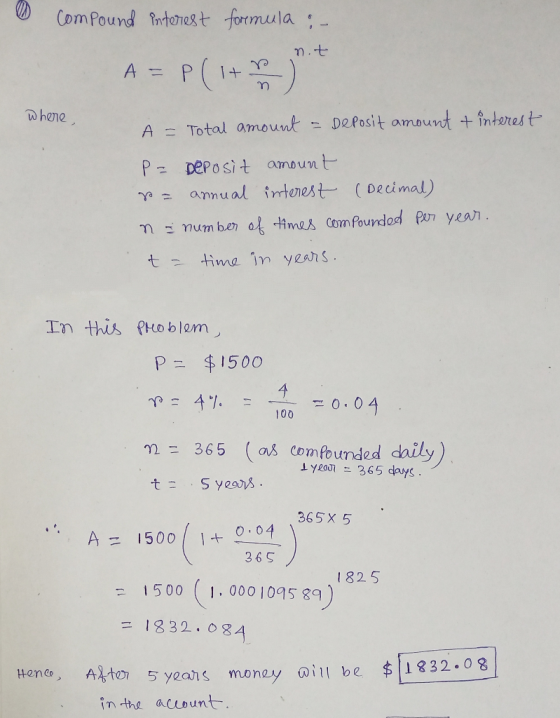 (1) Compound interest formula :-
A = P(1 + r/n)^n.t
where,
A = Total amount = Deposit amount + interest
P = Deposit amount
r = annual interest (Decimal)
n = number of times compounded per year.
t = time in years.
In this problem,
P = $1500
r = 4% = 4/100 = 0.04
n = 365 (as compounded daily)
1 year = 365 days.
t = 5 years.
∴ A = 1500(1 + 0.04/365)^365×5
= 1500(1.000109589)^1825
= 1832.084
Hence, After 5 years money will be $ 1832.08
in the account.